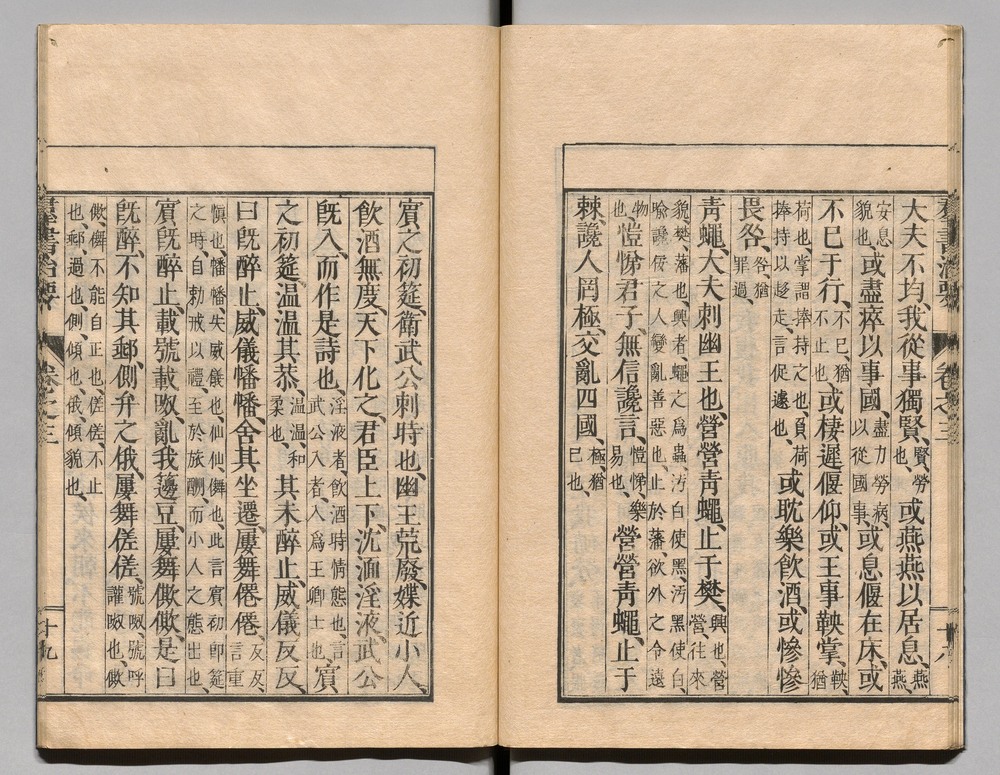 大夫不均、我從事獨賢、賢、勞也、或燕燕以居息、燕燕、
安息貌也、或盡瘁以事國、盡力勞病、以從國事、或息偃在床、或
不已于行、不已、猶不止也、或棲遲偃仰、或王事鞅掌、鞅、猶
荷也、掌謂捧持之也、負荷捧持以趍走、言促遽也、或耽樂飲酒、或慘慘
畏咎、咎、猶罪過、
青蠅、大夫刺幽王也、營營青蠅、止于樊、興也、營營、往來
貌、樊、藩也、興者、蠅之爲蟲、汚白使黑、汚黑使白、喻讒佞之人、變亂善惡也、止於藩、欲外之令遠
物也、愷悌君子、無信讒言、愷悌、樂易也、營營青蠅、止于
棘、讒人罔極、交亂四國、極、猶已也、
賓之初筵、衛武公刺時也、幽王荒廢、媟近小人、
飲酒無度、天下化之、君臣上下、沈湎淫液、武公
既入、而作是詩也、淫液者、飲酒時情態也、言武公入者、入爲王卿士也、賓
之初筵、温温其恭、温温、和柔也、其未醉止、威儀反反、
曰既醉止、威儀幡幡、舍其坐遷、屢舞僊僊、反反、言重
愼也、幡幡失威儀也、仙仙、儛也、此言賓初即筵之時、自勅戒以禮、至於旅酬、而小人之態出也、
賓既醉止、載號載呶、亂我籩豆、屢舞僛僛、是曰
既醉、不知其郵、側弁之俄、屢舞傞傞、號呶、號呼讙呶也、僛
僛、儛不能自正也、傞傞、不止也、郵、過也、側、傾也、俄、傾貌也、
羣書治要 卷之三 十八
羣書治要 卷之三 十九